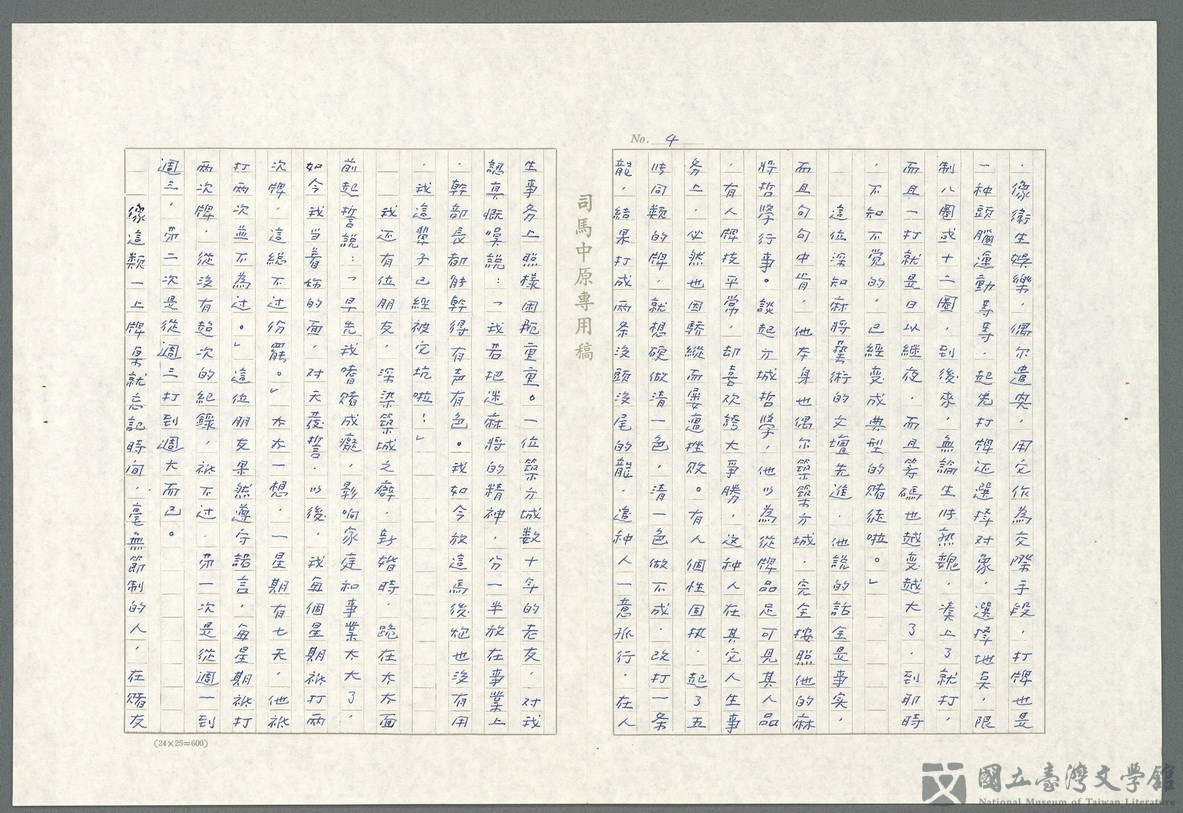 No. 4
，像衛生娛樂，偶尔遣興，用它作為交際手段，打牌也是
一种頭腦運動等等，起先打牌还選擇对象，選擇地臭，限
制八圈或十二圈，到後來，無論生冷熟魏，湊上了就打，
而且一打就是日以継夜，而且筹碼也越变越大了，到那時
，不知不觉的，已經变成典型的赌徒啦。」
這位深知麻將藝術的文壇先進，他說的話全是事实，
而且句句中肯，他本身也偶尔築築方城，完全按照他的麻
將哲學行事。談起方城哲學，他以為從牌品足可見其人品
，有人牌技平常，却喜欢誇大爭勝，这种人在其它人生事
务上，必然也因驕縱而屡遭挫敗。有人個性固执，起了五
時同類的牌，就想硬做清一色，清一色做不成，改打一条
龍，結果打成两条沒頭沒尾的龍，這种人一意孤行，在人
司馬中原專用稿
生事务上照樣困扼重重。一位築方城数十年的老友，对我
認真慨嘆說：「我若把迷麻將的精神，分一半放在事業上
，幹部長都能幹得有声有色。我如今放這馬後炮也沒有用
，我這輩子已經被它坑啦！」
我还有位朋友，深染築城之癖，新婚時，跪在太太面
前起誓說：「早先我嗜赌成癡，影响家庭和事業太大了，
如今我当着妳的面，对天發誓，以後，我每個星期祇打两
次牌，這総不过份罷。」太太一想，一星期有七天，他祇
打两次並不為过。」這位朋友果然遵守諾言，每星期祇打
两次牌，從沒有超次的紀錄，祇不过，第一次是從週一到
週三，第二次是從週三打到週大而已。
像這類一上牌桌就忘記時间，毫無節制的人，在赌友
(24×25=600)
國立臺灣文學館
National Museum of Taiwan Literature